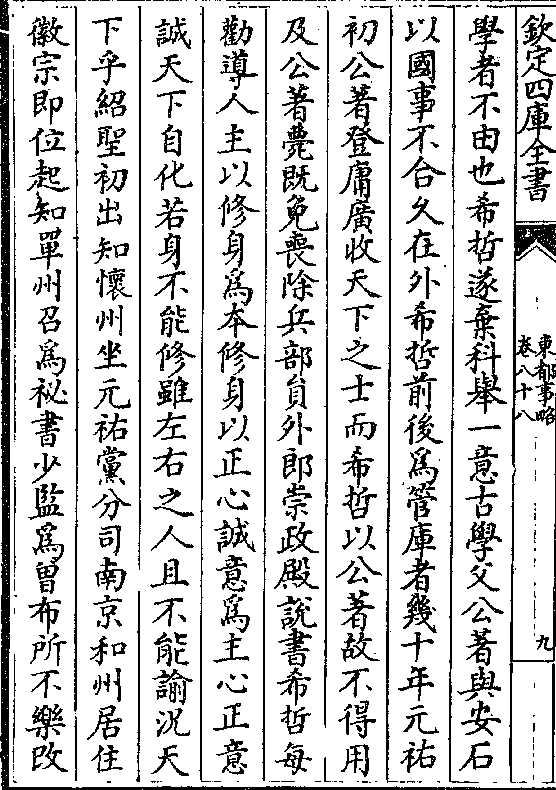 欽定四庫全書
東都事略
卷八十八
九
學者不由也希哲遂棄科舉一意古學父公著與安石
以國事不合久在外希哲前後為管庫者幾十年元祐
初公著登庸廣收天下之士而希哲以公著故不得用
及公著薨既免喪除兵部員外郎崇政殿說書希哲每
勸導人主以修身為本修身以正心誠意為主心正意
誠天下自化若身不能修雖左右之人且不能諭況天
下乎紹聖初出知懷州坐元祐黨分司南京和州居住
徽宗即位起知單州召為祕書少監為曾布所不樂改